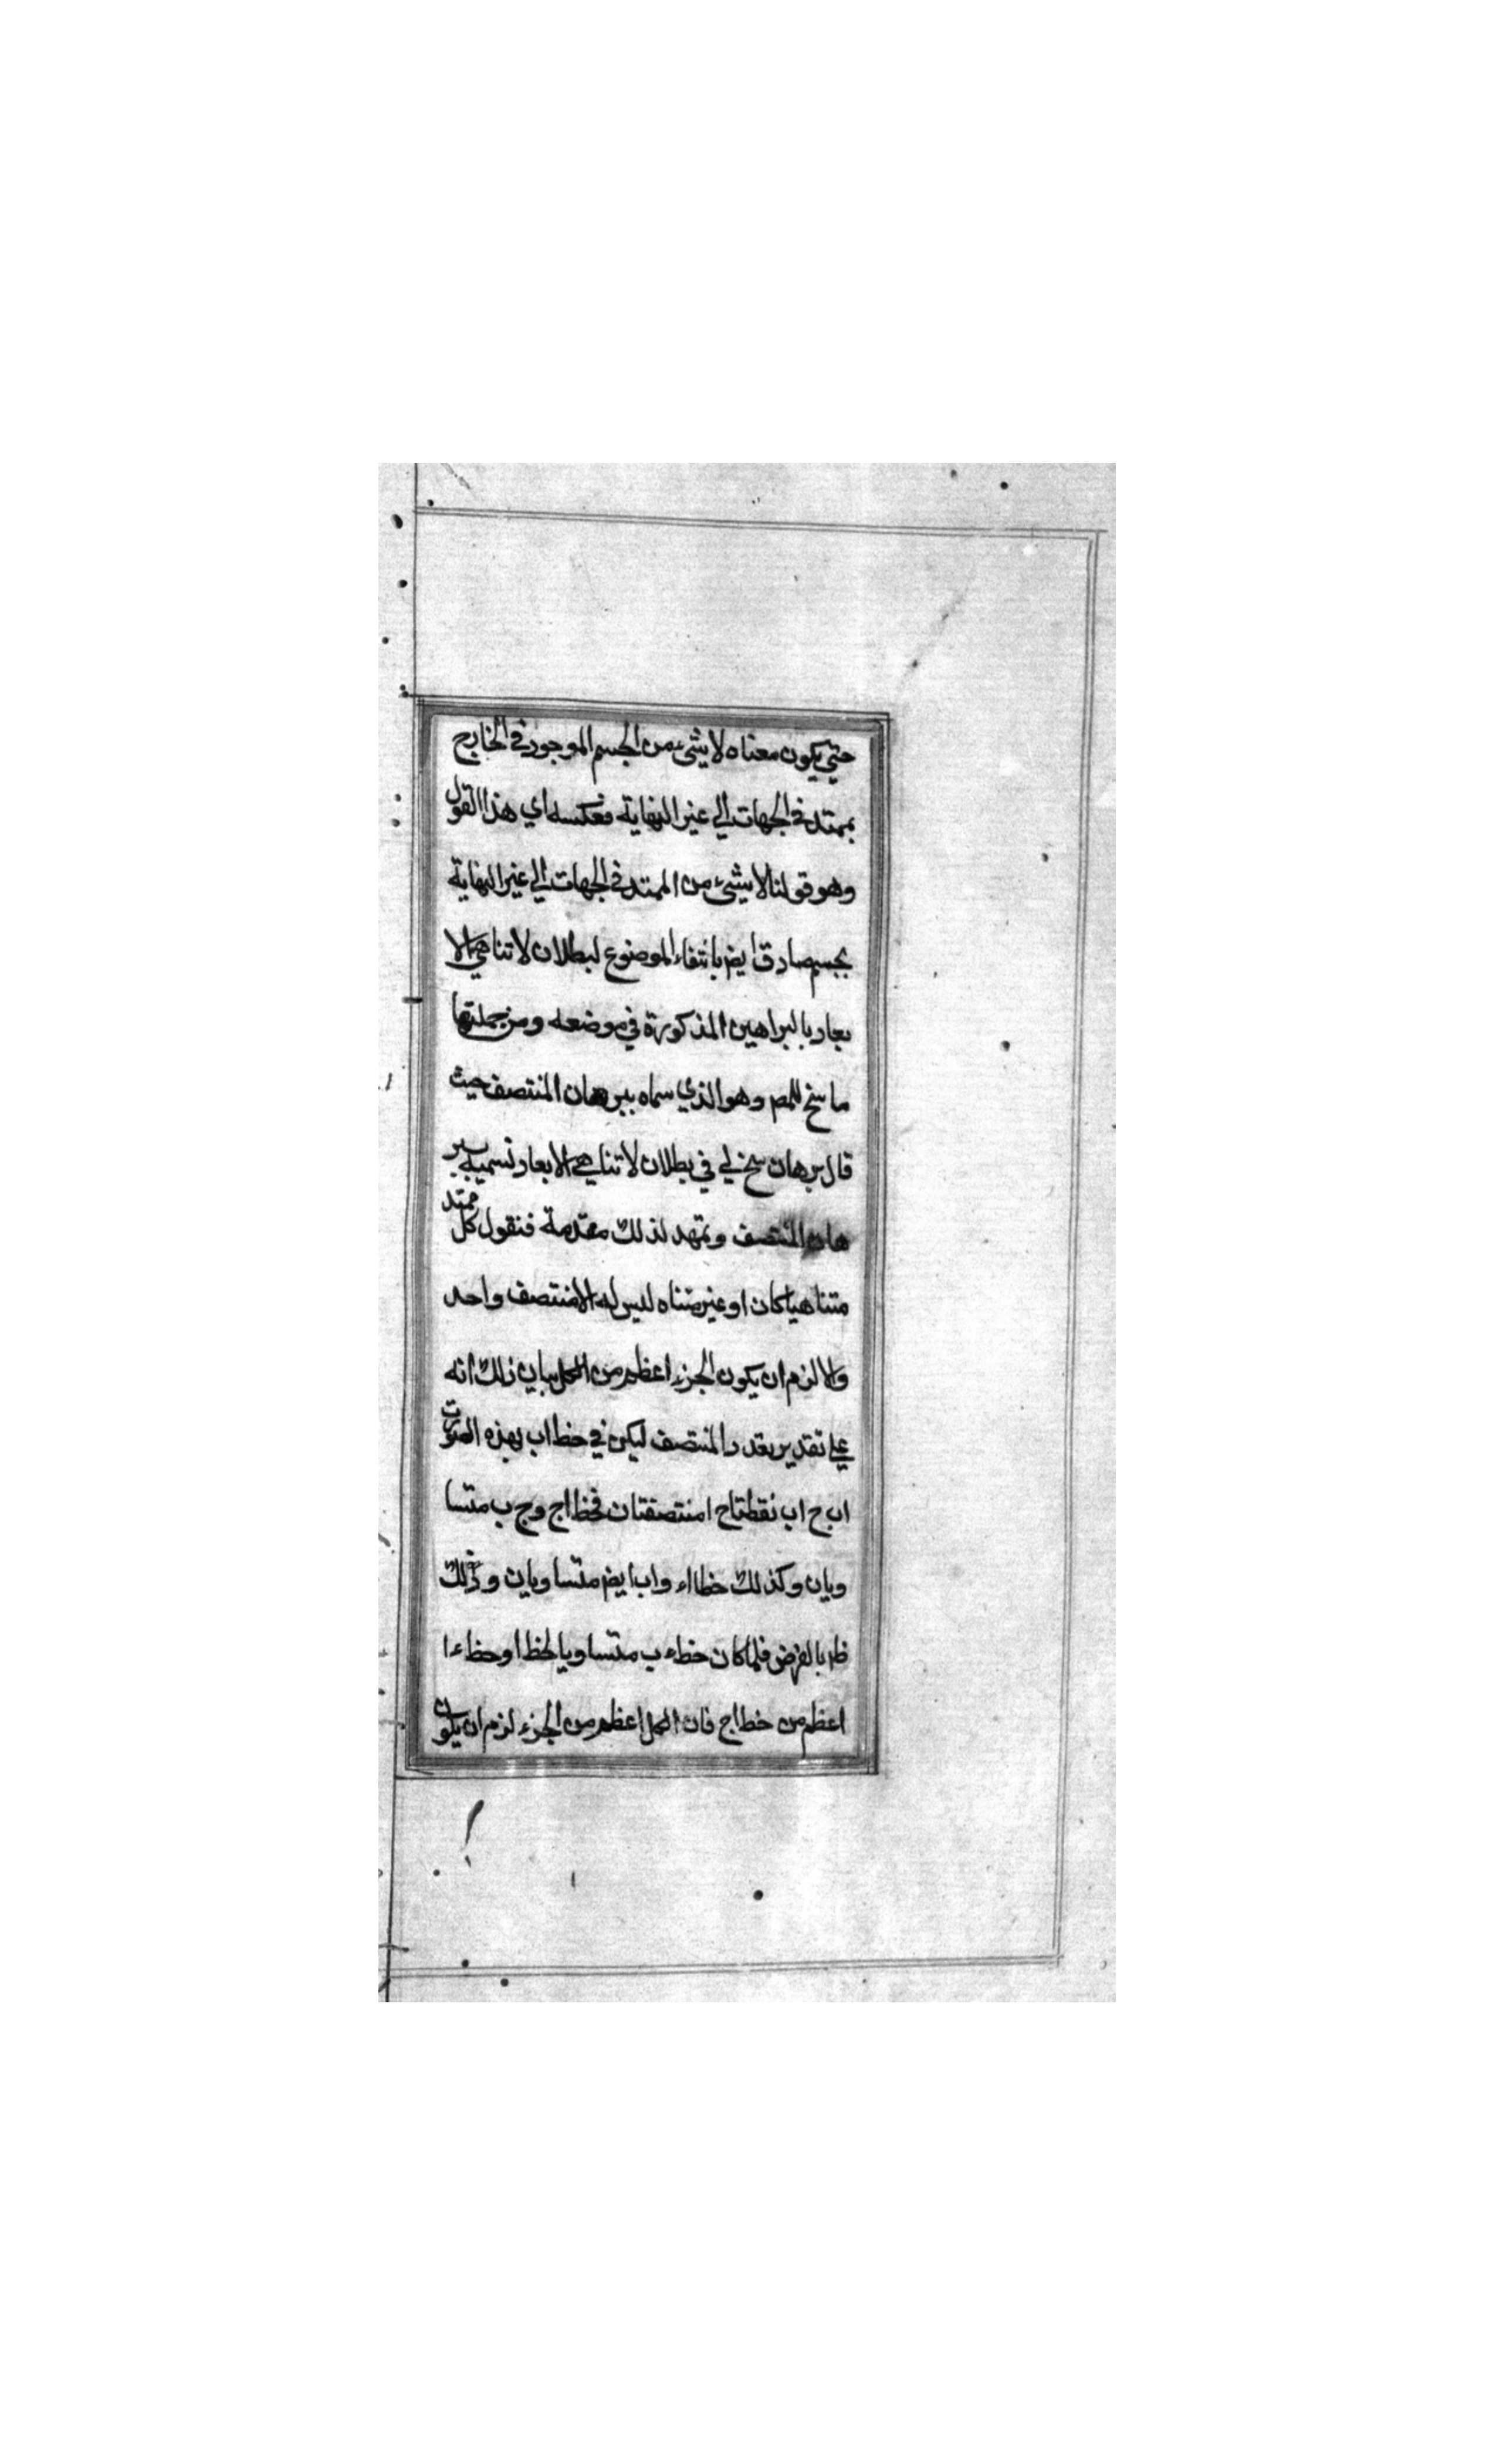 حتي يكون معناه لا شئ من الجسم الموجود في الخارج
بممتد في الجهات الي غير النهاية فعكسه اي هذا القول
وهو قولنا لا شئ من الممتد في الجهات الي غير النهاية
بجسم صادق ايض بانتفاء الموضوع لبطلان لا تناهي الا
بعاد بالبراهين المذكورة في موضعه ومن جملتها
ما سنح للمص وهو الذي سماه ببرهان المنتصف حيث
قال برهان سنح لي في بطلان لا تناهي الابعاد نسميه ببر
هان المنتصف ونمهد لذلك مقدمة فنقول كل ممتد
متناهيا كان او غير متناه ليس له الا منتصف واحد
والا لزم ان يكون الجزء اعظم من الكل بيان ذلك انه
علي تقدير تعدد المنتصف ليكن في خط اب بهذه الصورت
اب ح اب نقطتاح امنتصفتان فخط اج وج ب متسا
ويان وكذلك خطا اء واب ايض متساويان وذلك
ظ بالفرض فلما كان خط ء ب متساويا لخط ا وخط ء ا
اعظم من خط اج فان الكل اعظم من الجزء لزم ان يكون